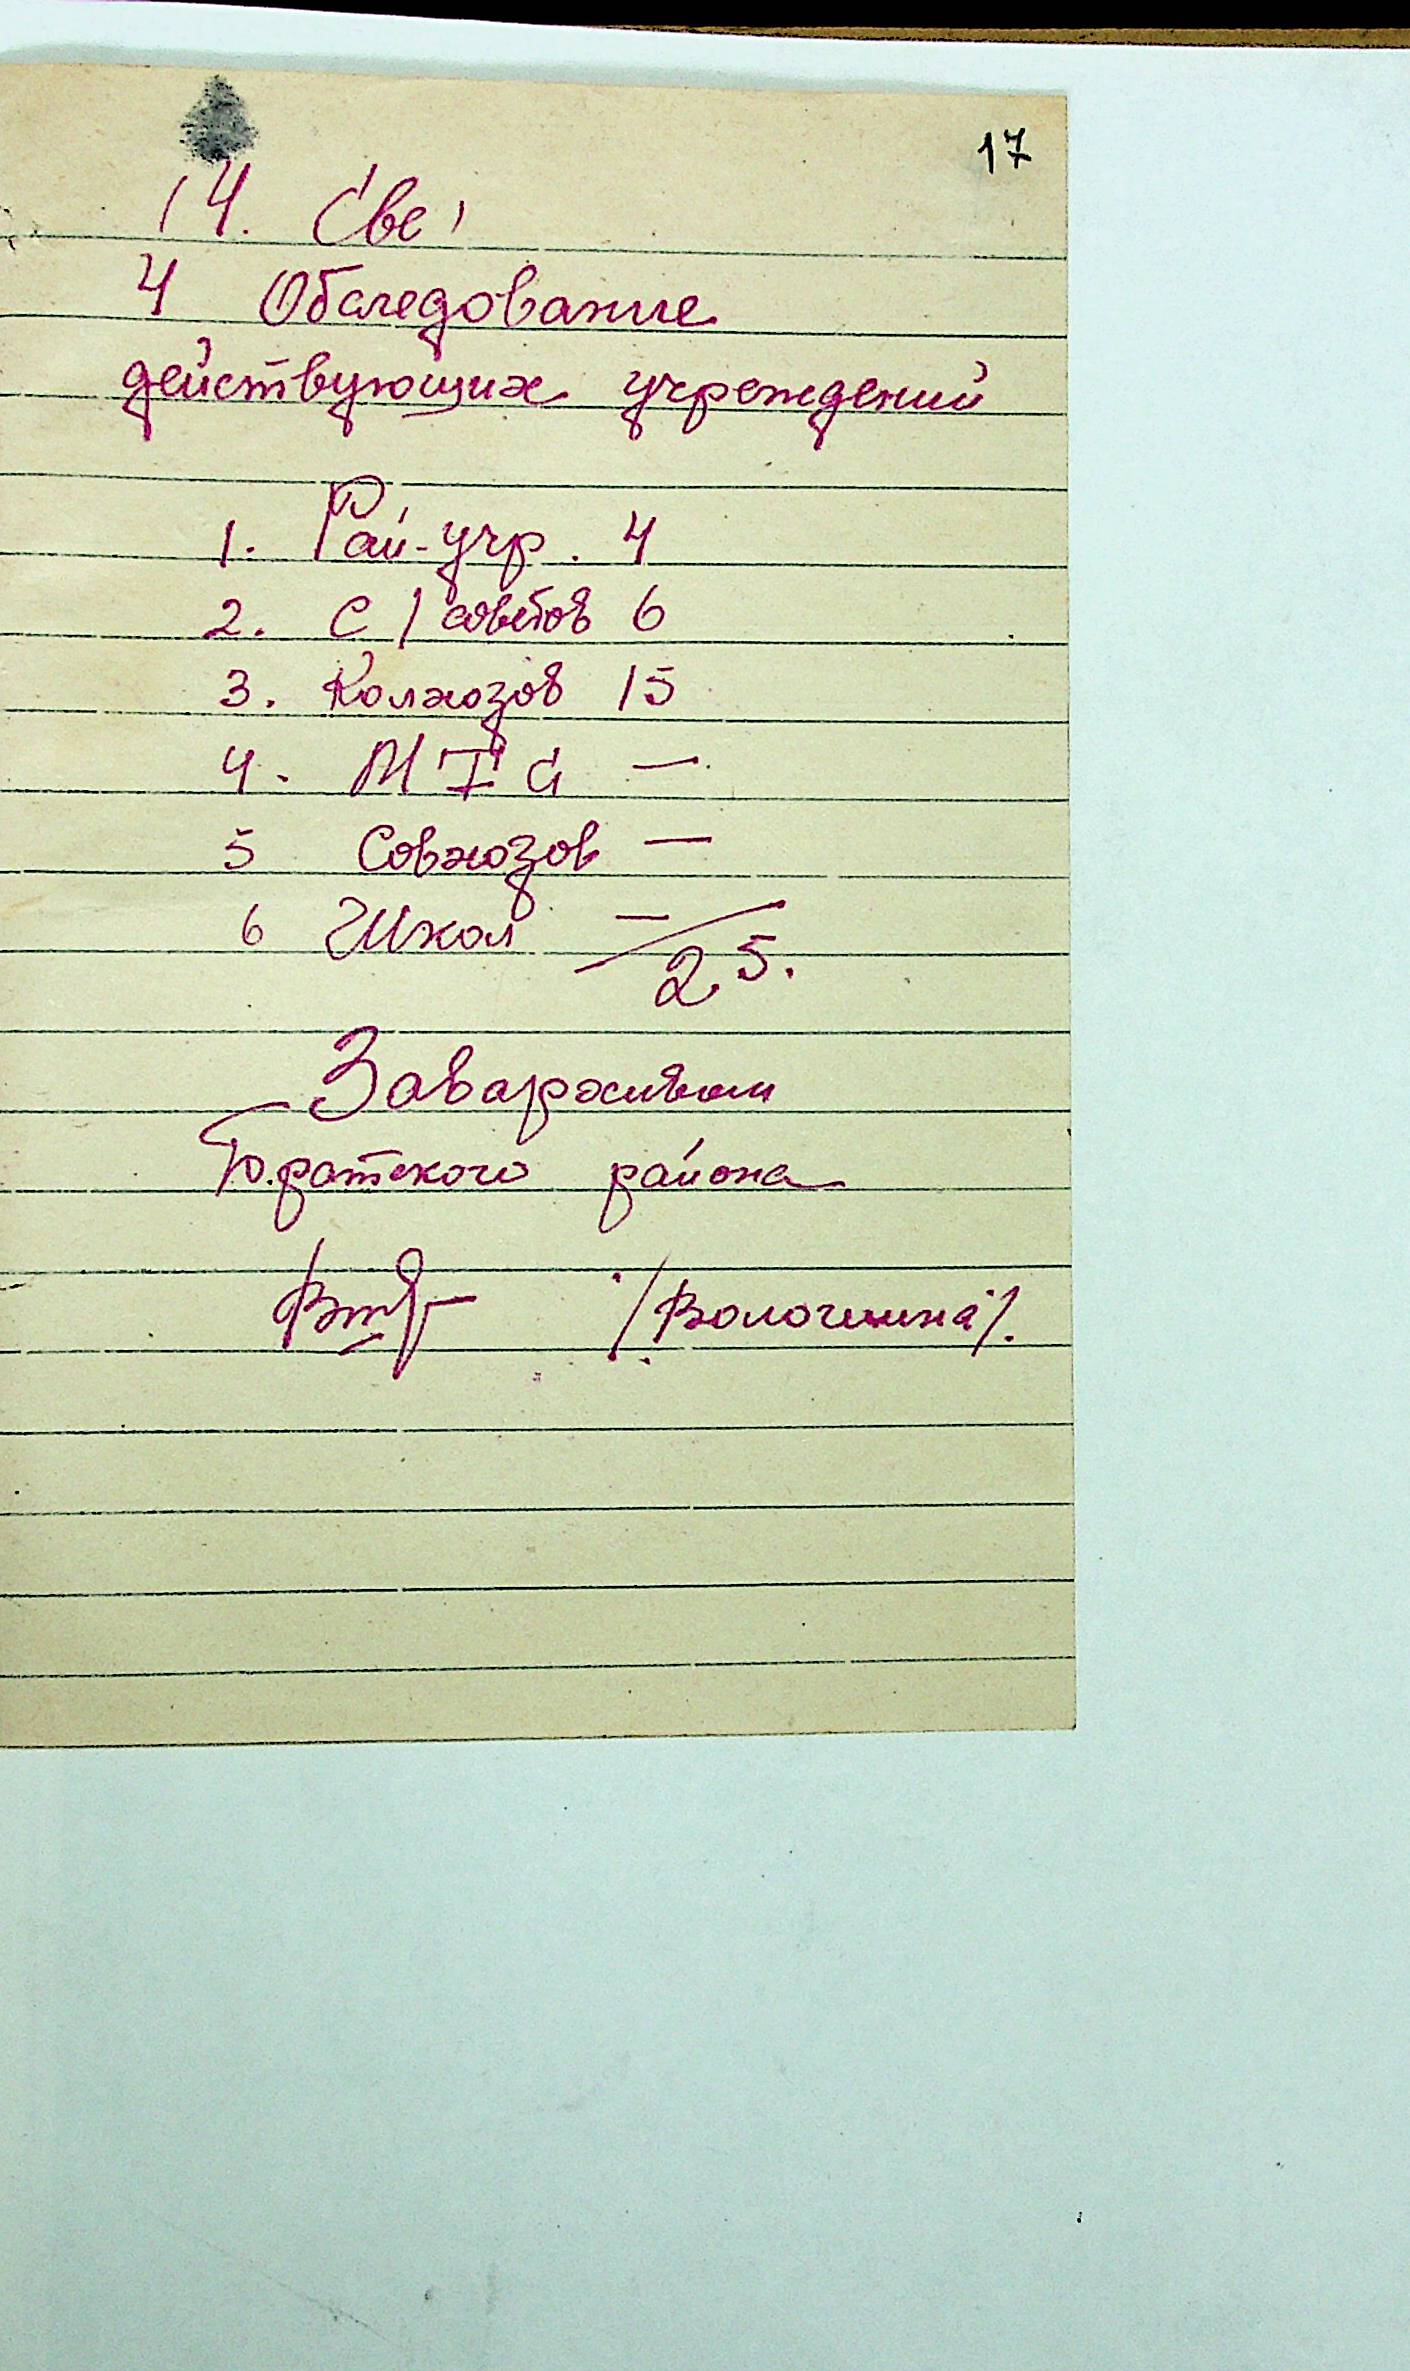 17
14. Све
4 Обследование
действующих учреждений
1. Рай-учр. 4
2. С/советов 6
3. Колхозов 15
4. МТС —
5 Совхозов —
6 Школ —
25.
Завархивом
Ю.ратского района
/Вологжина/.